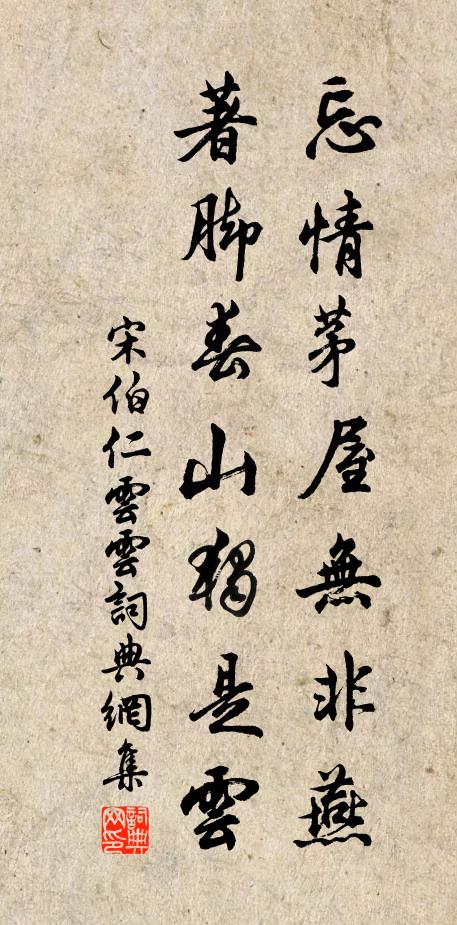 忘情茅屋無非燕
著脚春山獨是雲
宋伯仁雲雲詞典網集
詞典網印